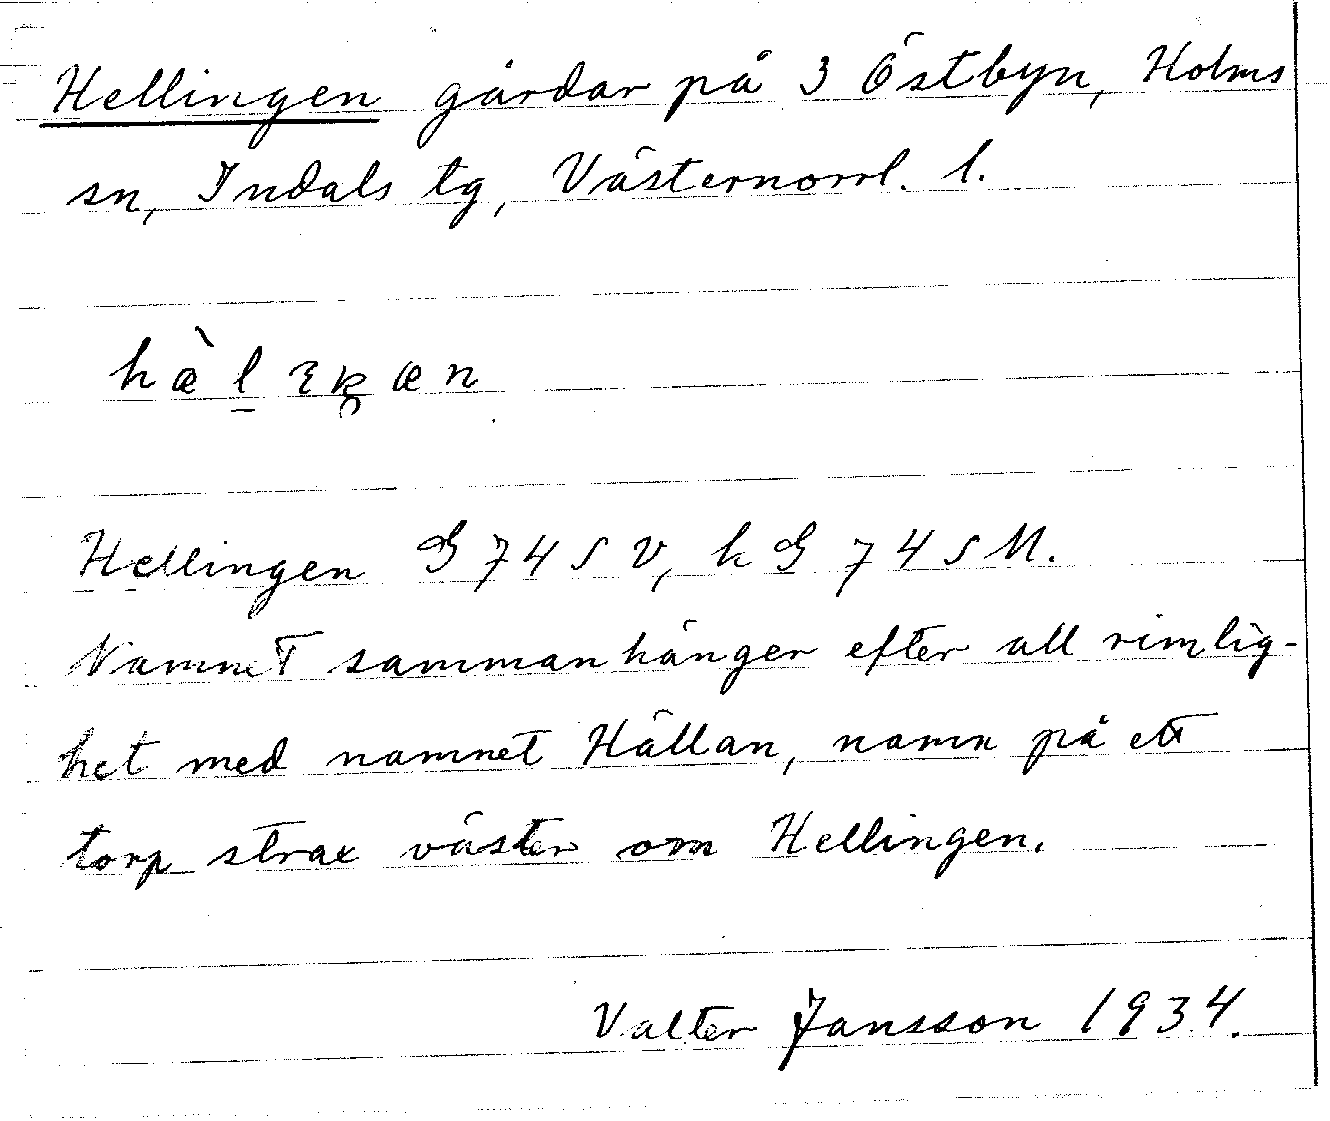 Hellingen gårdar på 3 Östbyn, Holms
sn, Indals tg, Västernorrl. l.
Hellingen G 74 S V, k G 74 S M.
Namnet sammanhänger efter all rimlig-
het med namnet Hällan, namn på ett
torp strax väster om Hellingen.
Valter Jansson 1934.